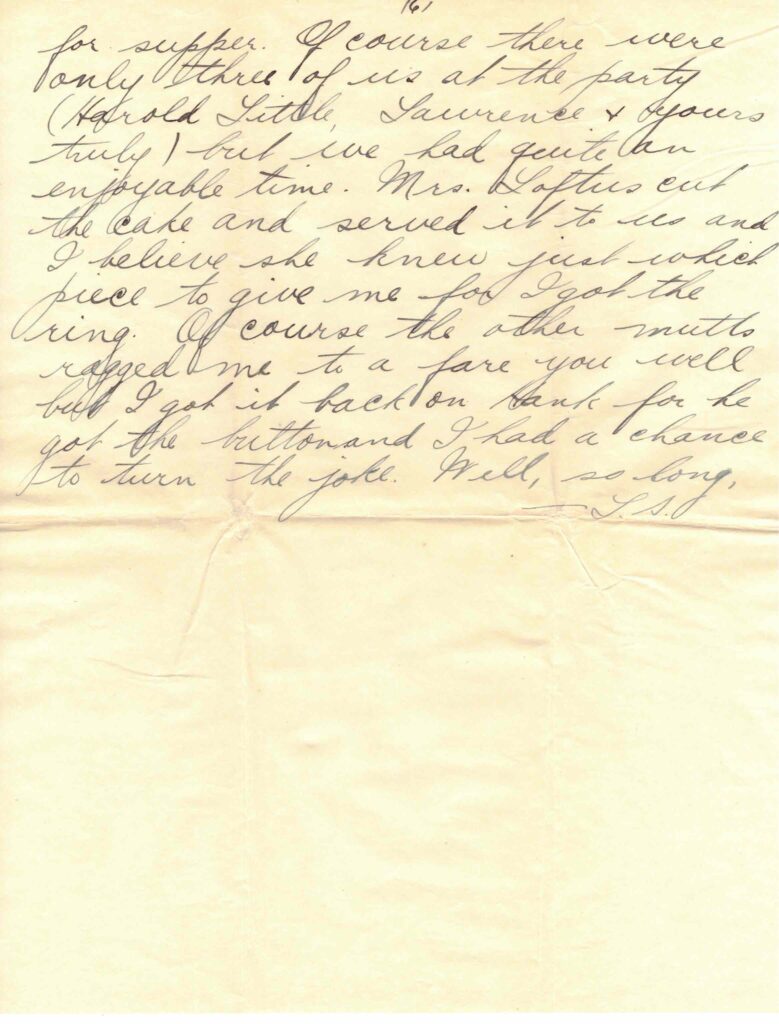 161
for supper. Of course there were
only three of us at the party
(Harold Little, Lawrence & yours
truly) but we had quite an
enjoyable time. Mrs. Loftus cut
the cake and served it to us and
I believe she knew just which
piece to give me for I got the
ring. Of course the other mutts
ragged me to a fare you well
but I got it back on Hank for he
got the button and I had a chance
to turn the joke. Well, so long,
— L.S.